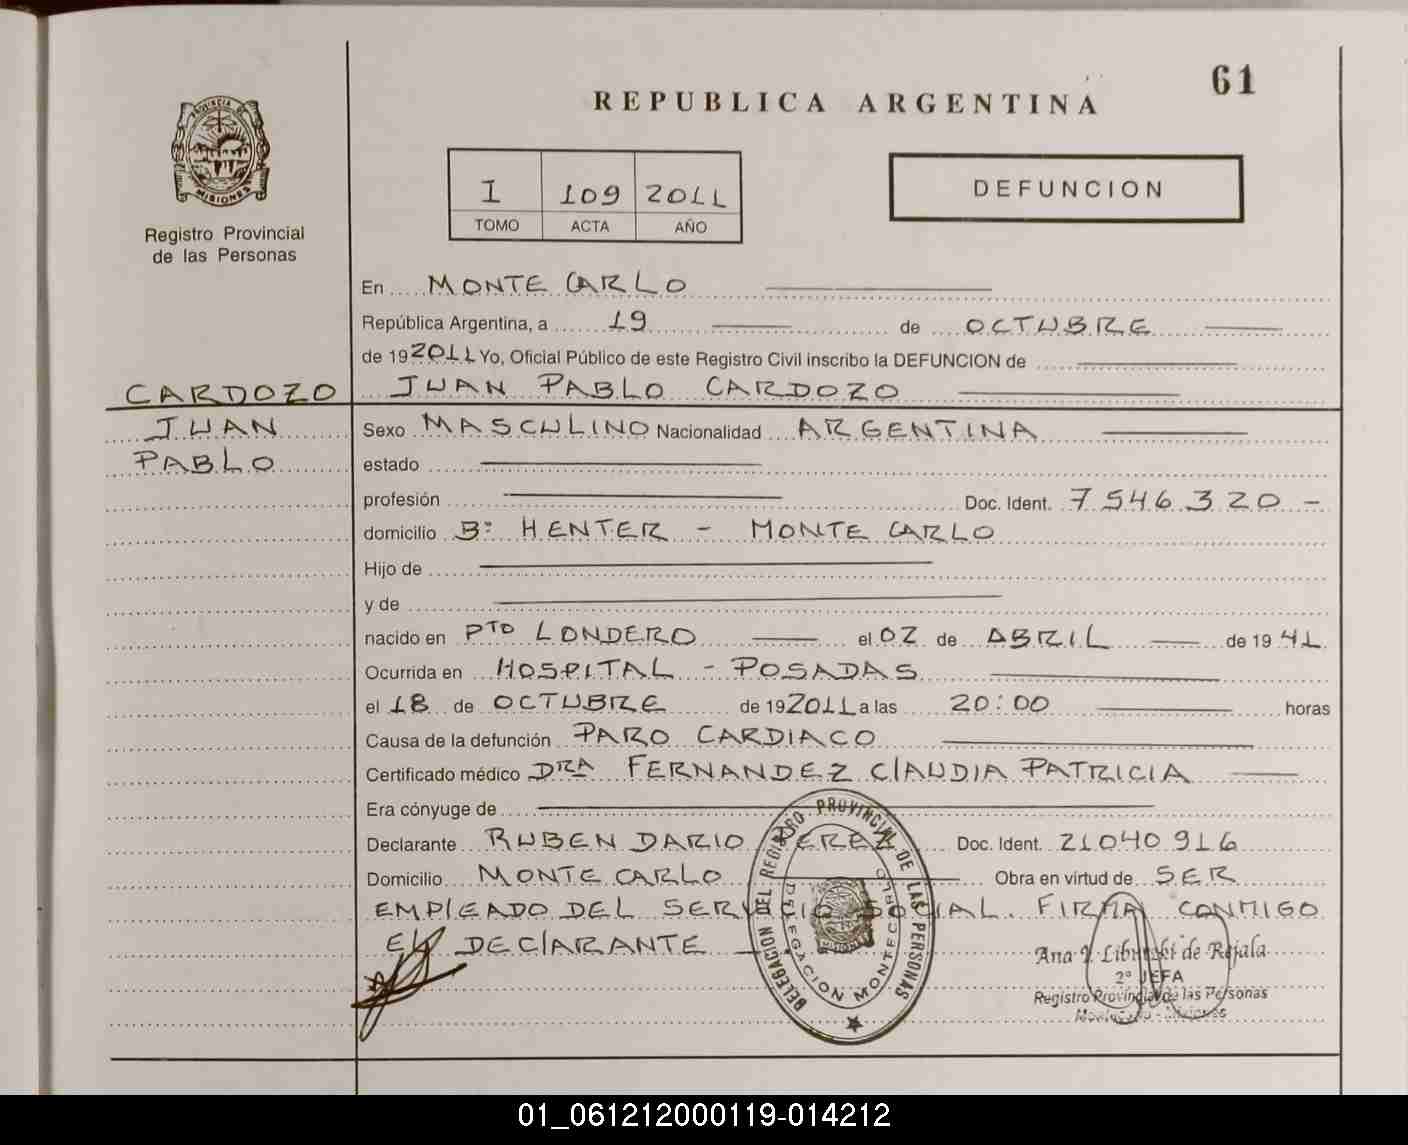 61
REPUBLICA ARGENTINA
PROVINCIA DE
MISIONES
Registro Provincial
de las Personas
I 109 2011
TOMO ACTA AÑO
DEFUNCION
En MONTE CARLO
República Argentina, a 19 de OCTUBRE
de 192011 Yo, Oficial Público de este Registro Civil inscribo la DEFUNCION de
CARDOZO JUAN PABLO CARDOZO
JUAN Sexo MASCULINO Nacionalidad ARGENTINA
PABLO estado
profesión Doc. Ident. 7.546.320 -
domicilio Bº HENTER - MONTE CARLO
Hijo de
y de
nacido en PTO LONDERO el 02 de ABRIL de 1941
Ocurrida en HOSPITAL - POSADAS
el 18 de OCTUBRE de 192011 a las 20:00 horas
Causa de la defunción PARO CARDIACO
Certificado médico DRA FERNANDEZ ClAUDIA PATRICIA
Era cónyuge de
Declarante RUBEN DARIO PEREZ Doc. Ident. 21040916
Domicilio MONTE CARLO Obra en virtud de SER
EMPlEADO DEL SERVICIO SOCIAL. FIRMA CONMIGO
El DEClARANTE -.
DELEGACION DEL REGISTRO PROVINCIAL DE LAS PERSONAS
DELEGACION MONTECARLO
MISIONES
de Rojala
2º JEFA
Registro Provincial de las Personas
Montecarlo - Misiones
01_061212000119-014212